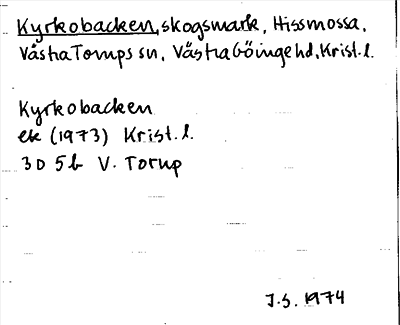 Kyrkobacken, skogsmark, Hissmossa,
Västra Torups sn, Västra Göinge hd, Krist. l.
Kyrkobacken
ek (1973) Krist. l.
3D 5b V. Torup
J.S. 1974